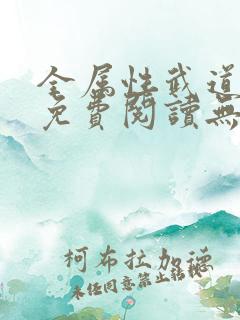 全属性武道
免費閱讀無
柯布拉加德
未经同意禁止转载